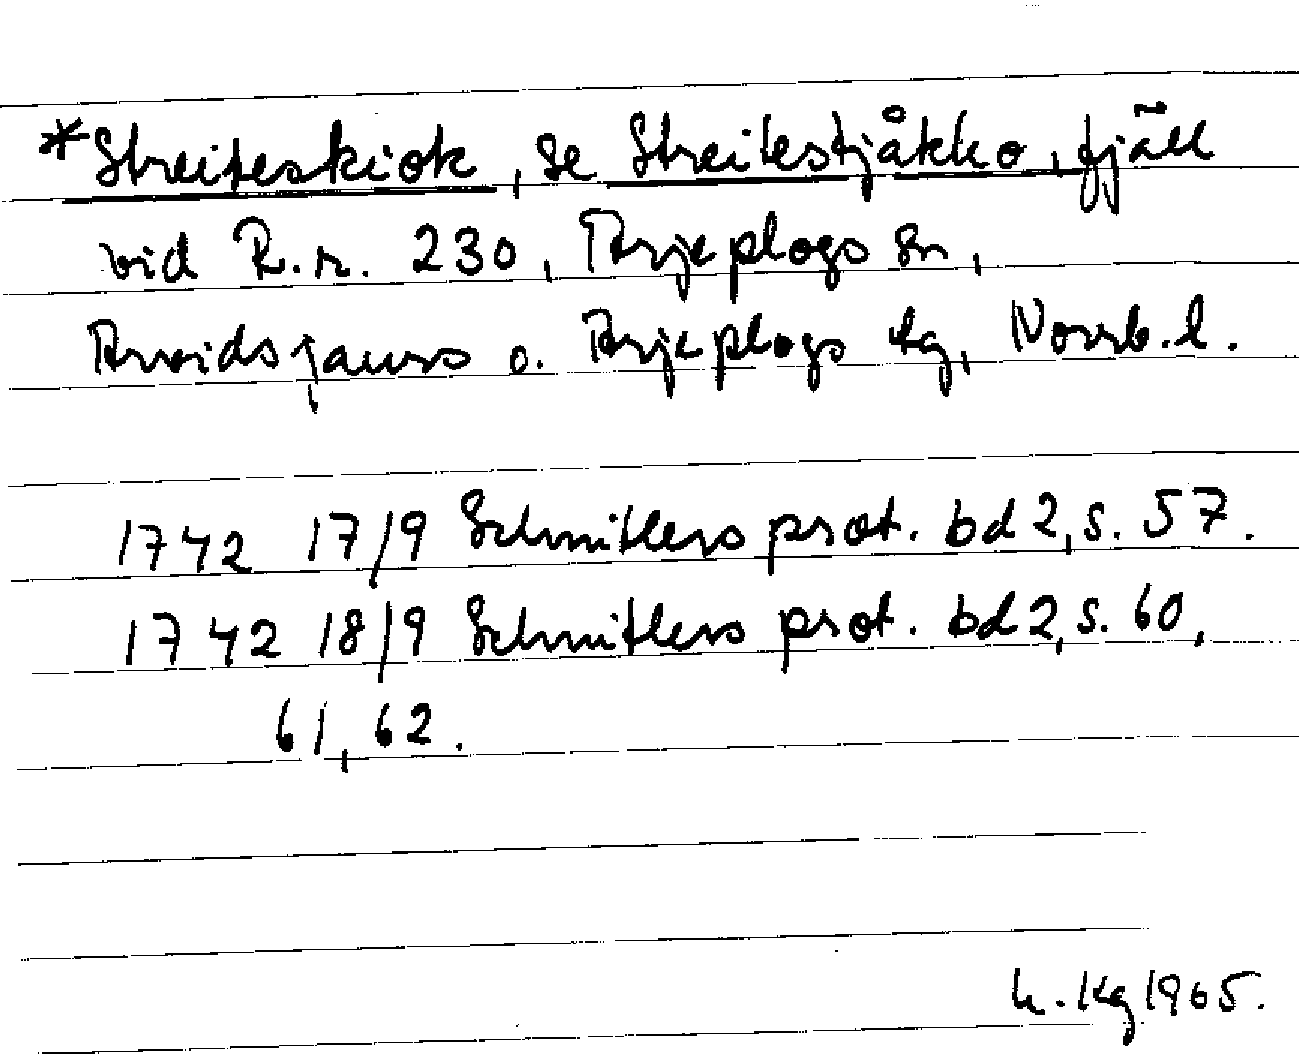 *Streiteskiok, se Streitestjåkko, fjäll
vid R.r. 230, Arjeplogs sn,
Arvidsjaurs o. Arjeplogs tg, Norrb. l.
1742 17/9 Schnitlers prot. bd 2, s. 57.
1742 18/9 Schnitlers prot. bd 2, s. 60,
61, 62.
h. Kg 1965.